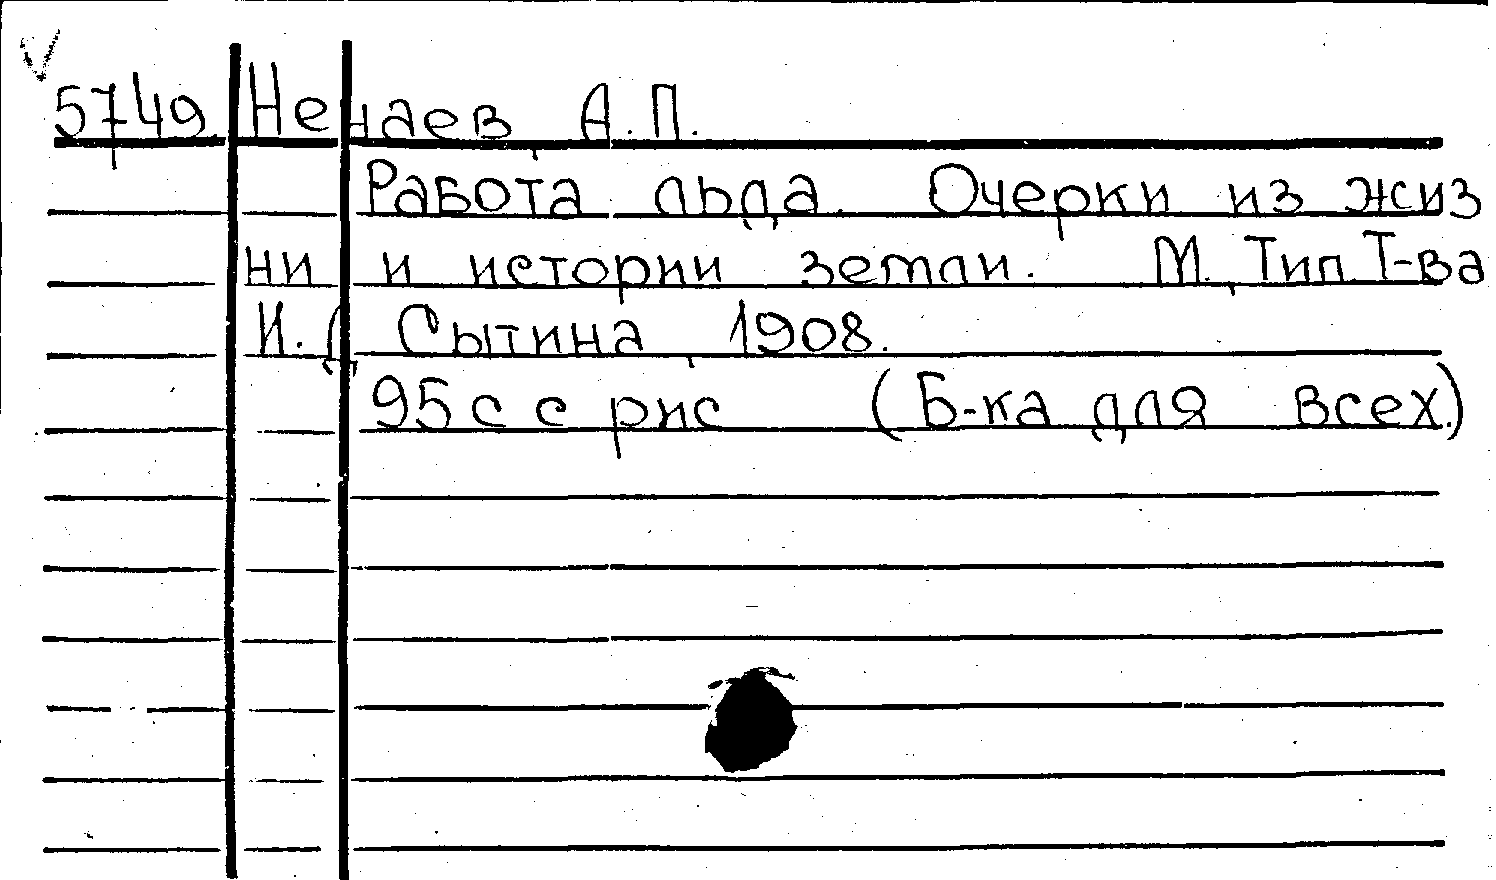 5749 Ненаев, А.П.
Работа льда. Очерки из жиз
ни и истории земли. М., Тип. Т-ва
И.Д. Сытина, 1908.
95 с с рис (Б-ка для всех.)